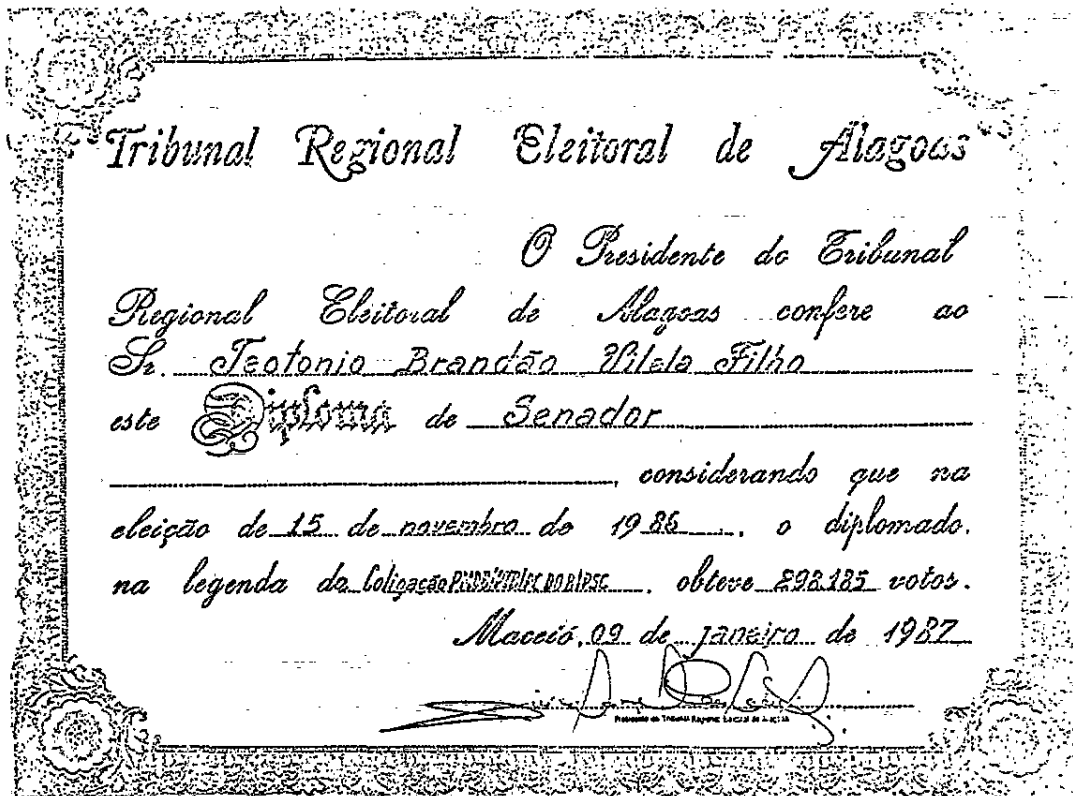 Tribunal Regional Eleitoral de Alagoas
O Presidente do Tribunal
Regional Eleitoral de Alagoas confere ao
Sr. Teotonio Brandão Vilela Filho
este Diploma de Senador
, considerando que na
eleição de 15 de novembro de 1986, o diplomado,
na legenda da Coligação, obteve votos.
Maceió, 09 de janeiro de 1987
Presidente do Tribunal Regional Eleitoral de Alagoas